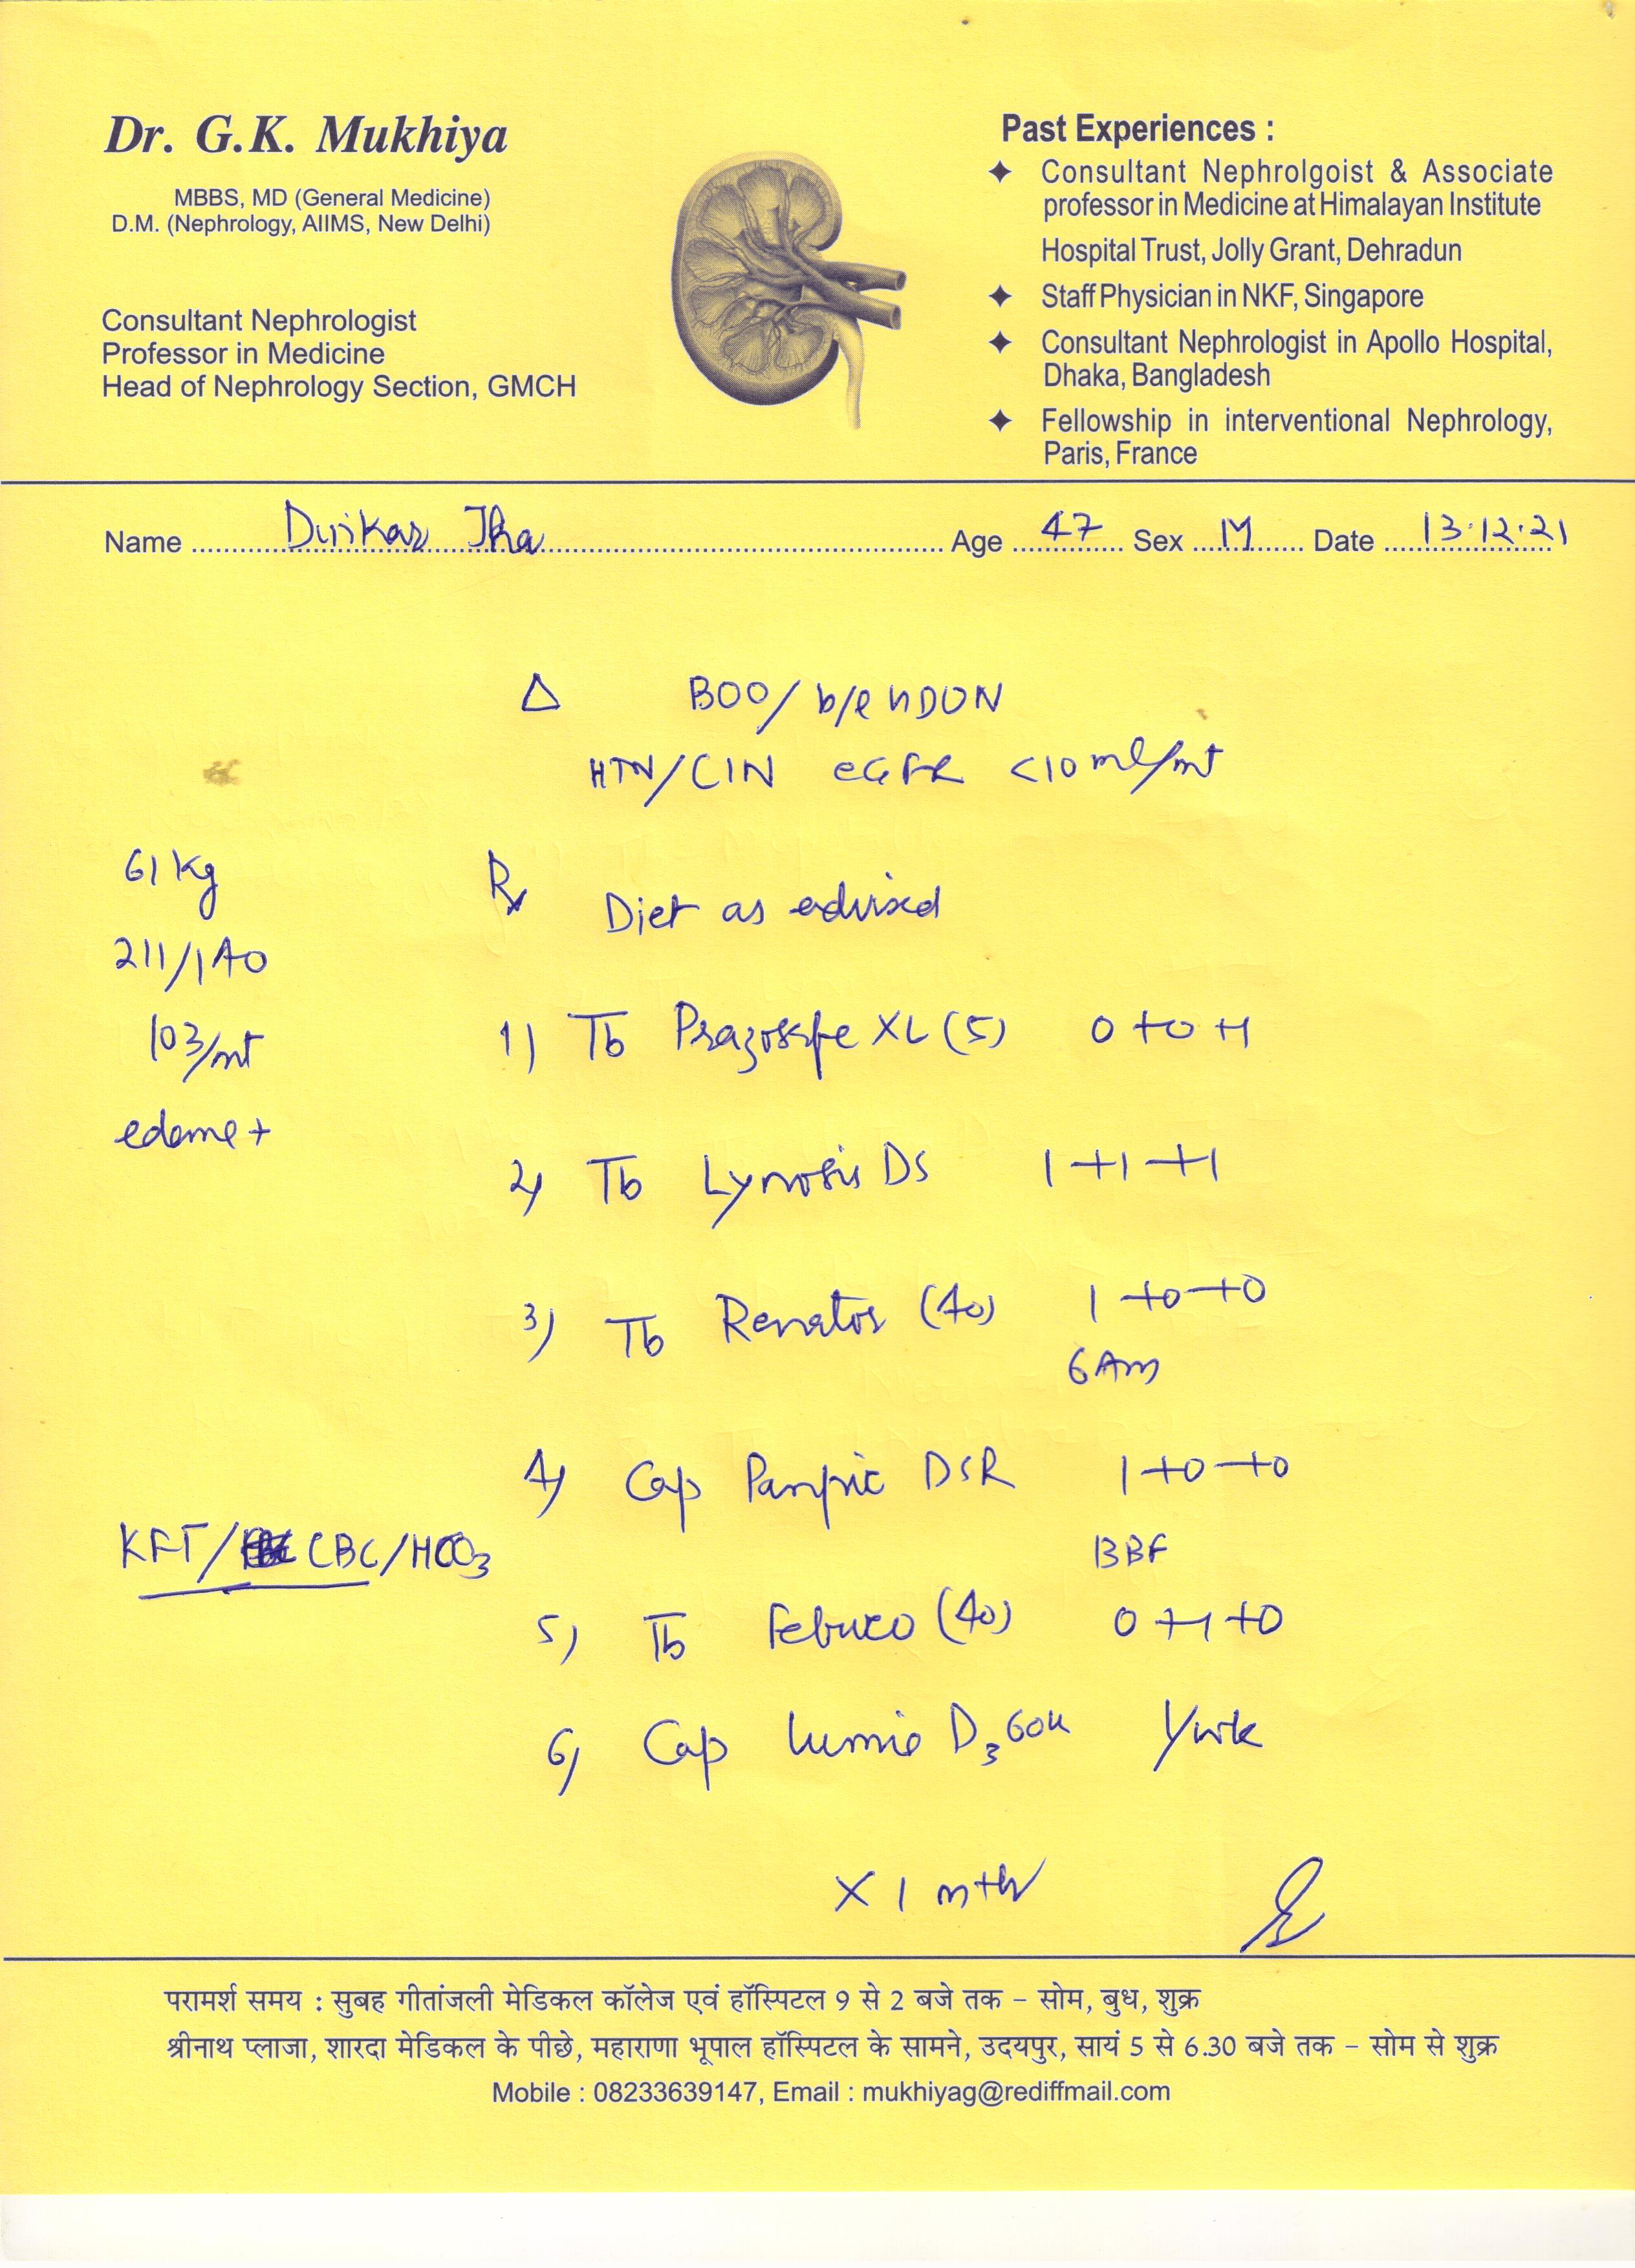 Dr. G.K. Mukhiya
MBBS, MD (General Medicine)
D.M. (Nephrology, AIIMS, New Delhi)
Consultant Nephrologist
Professor in Medicine
Head of Nephrology Section, GMCH
Past Experiences :
✦ Consultant Nephrolgoist & Associate
professor in Medicine at Himalayan Institute
Hospital Trust, Jolly Grant, Dehradun
✦ Staff Physician in NKF, Singapore
✦ Consultant Nephrologist in Apollo Hospital,
Dhaka, Bangladesh
✦ Fellowship in interventional Nephrology,
Paris, France
Name Jha Age 47 Sex M Date 13.12.21
Δ BOO/ b/l HDUN
HTN/CIN eGFR <10 ml/mt
61 kg
211/140
103/mt
edema +
Rx Diet as advised
1) Tb XL (5) 0+0+1
2) Tb DS 1+1+1
3) Tb (40) 1+0+0
6 Am
4) Cap DSR 1+0+0
BBF
KFT/ CBC/HCO3
5) Tb (40) 0+1+0
6) Cap D3 60k
X 1 mth
परामर्श समय : सुबह गीतांजली मेडिकल कॉलेज एवं हॉस्पिटल 9 से 2 बजे तक – सोम, बुध, शुक्र
श्रीनाथ प्लाजा, शारदा मेडिकल के पीछे, महाराणा भूपाल हॉस्पिटल के सामने, उदयपुर, सायं 5 से 6.30 बजे तक – सोम से शुक्र
Mobile : 08233639147, Email : mukhiyag@rediffmail.com